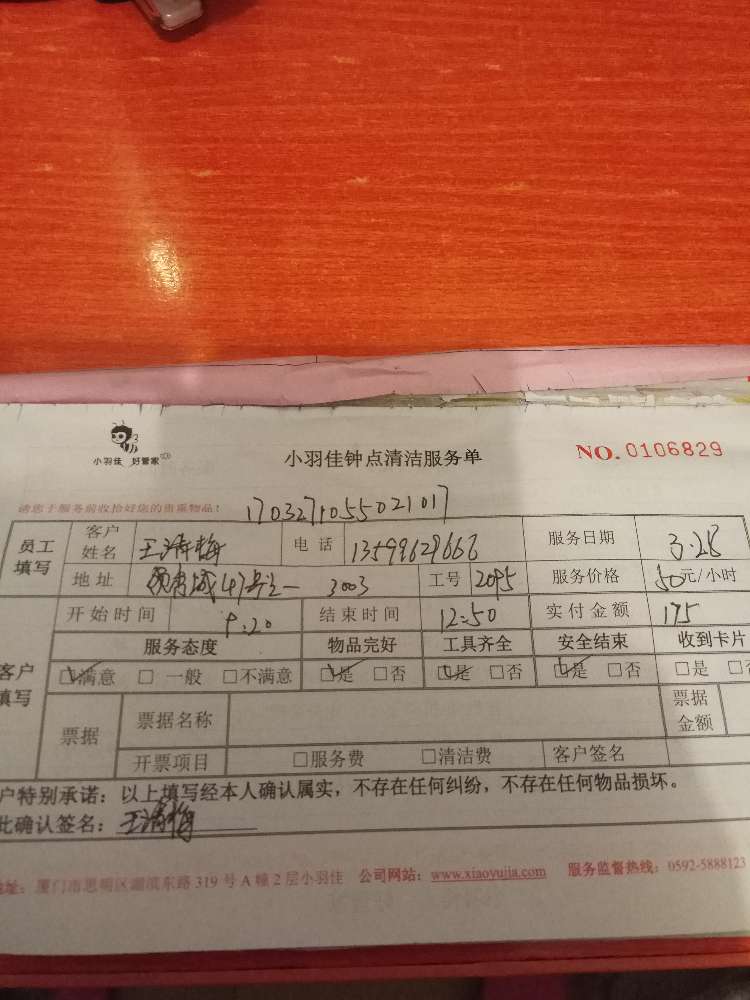 小羽佳 好管家
小羽佳钟点清洁服务单
NO. 0106829
请您于服务前收拾好您的贵重物品!
1703271055021017
员工填写 客户姓名 王 梅 电话 13599629666 服务日期 3.28
地址 城47号之一 3003 工号 2095 服务价格 50元/小时
开始时间 9.20 结束时间 12:50 实付金额 175
客户填写 服务态度 物品完好 工具齐全 安全结束 收到卡片
☑满意 □一般 □不满意 ☑是 □否 ☑是 □否 ☑是 □否 □是 □否
票据 票据名称 票据金额
开票项目 □服务费 □清洁费 客户签名
户特别承诺：以上填写经本人确认属实，不存在任何纠纷，不存在任何物品损坏。
此确认签名：王 梅
地址：厦门市思明区湖滨东路319号A幢2层小羽佳 公司网站：www.xiaoyujia.com 服务监督热线：0592-5888123